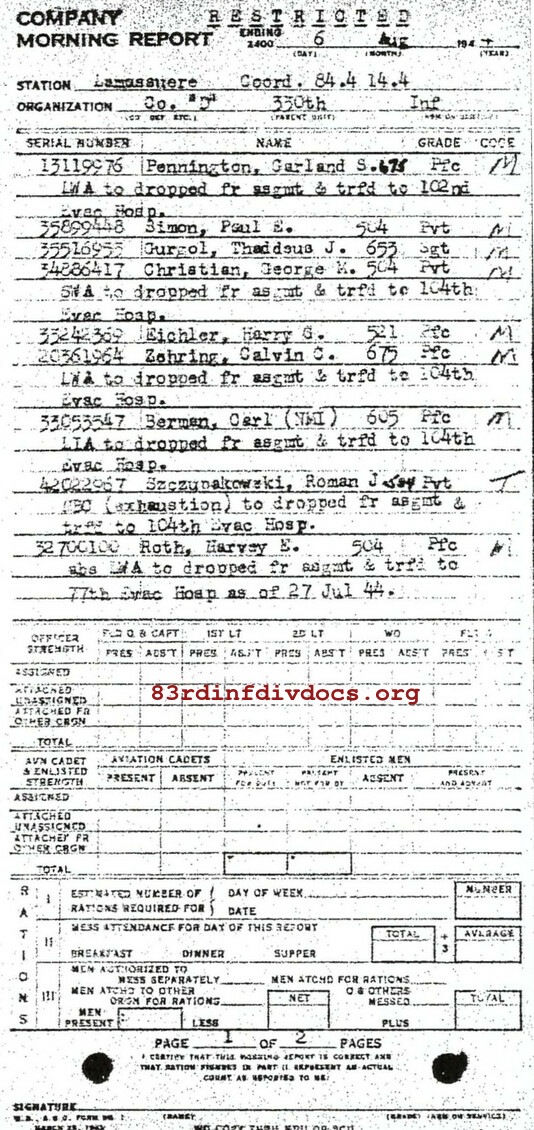 COMPANY RESTRICTED
MORNING REPORT ENDING 2400 6 Aug 194
(DAY) (MONTH) (YEAR)
STATION Lamassuere Coord. 84.4 14.4
ORGANIZATION Co. "D" 330th Inf
(PARENT UNIT)
SERIAL NUMBER NAME GRADE CODE
13119976 Pennington, Garland S. 675 Pfc M
LWA to dropped fr asgmt & trfd to 102nd
Evac Hosp.
35899448 Simon, Paul E. 504 Pvt M
35516955 Gurgol, Thaddeus J. 653 Sgt M
34886417 Christian, George M. 504 Pvt M
SWA to dropped fr asgmt & trfd to 104th
Evac Hosp.
35242369 Eichler, Harry G. 521 Pfc M
20361964 Zehring, Calvin C. 675 Pfc M
LWA to dropped fr asgmt & trfd to 104th
Evac Hosp.
33053547 Berman, Carl (NMI) 605 Pfc M
LIA to dropped fr asgmt & trfd to 104th
Evac Hosp.
42022967 Szczupakowski, Roman J. Pvt T
NBC (exhaustion) to dropped fr asgmt &
trfd to 104th Evac Hosp.
32700100 Roth, Harvey E. 504 Pfc M
abs LWA to dropped fr asgmt & trfd to
77th Evac Hosp as of 27 Jul 44.
OFFICER STRENGTH FLD O. & CAPT 1ST LT 2D LT WO
PRES ABS'T PRES ABS'T PRES ABS'T PRES ABS'T PRES
ASSIGNED
ATTACHED UNASSIGNED
83rdinfdivdocs.org
ATTACHED FR OTHER ORGN
TOTAL
AVN CADET & ENLISTED STRENGTH AVIATION CADETS ENLISTED MEN
PRESENT ABSENT PRESENT FOR DUTY PRESENT NOT FOR DY ABSENT PRESENT AND ABSENT
ASSIGNED
ATTACHED UNASSIGNED
ATTACHED FR OTHER ORGN
TOTAL
RATIONS
I ESTIMATED NUMBER OF RATIONS REQUIRED FOR DAY OF WEEK DATE NUMBER
II MESS ATTENDANCE FOR DAY OF THIS REPORT TOTAL ÷ 3 AVERAGE
BREAKFAST DINNER SUPPER
III MEN AUTHORIZED TO MESS SEPARATELY MEN ATCHD FOR RATIONS
MEN ATCHD TO OTHER ORGN FOR RATIONS NET O & OTHERS MESSED TOTAL
MEN PRESENT LESS PLUS
PAGE 1 OF 2 PAGES
I CERTIFY THAT THIS MORNING REPORT IS CORRECT AND
THAT RATION FIGURES IN PART II REPRESENT AN ACTUAL
COUNT AS REPORTED TO ME:
SIGNATURE
W.D., A.G.O. FORM NO. 1 (NAME) (GRADE) (ARM OR SERVICE)
MARCH 25, 1943